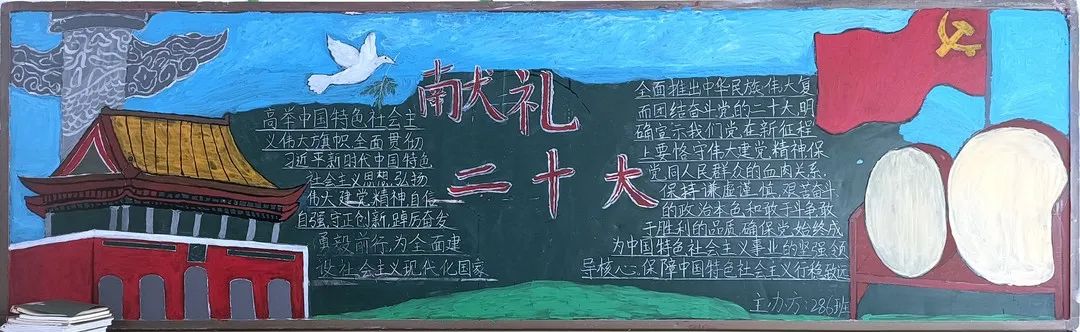 献礼
二十大
高举中国特色社会主
义伟大旗帜,全面贯彻
习近平新时代中国特色
社会主义思想,弘扬
伟大建党精神,自信
自强,守正创新,踔厉奋发
勇毅前行,为全面建
设社会主义现代化国家
全面推出中华民族伟大复
而团结奋斗党的二十大明
确宣示我们党在新征程
上要恪守伟大建党精神保
党同人民群众的血肉关系,
保持谦虚谨慎,艰苦奋斗
的政治本色和敢于斗争敢
于胜利的品质,确保党始终成
为中国特色社会主义事业的坚强领
导核心,保障中国特色社会主义行稳致远
主办方:286班